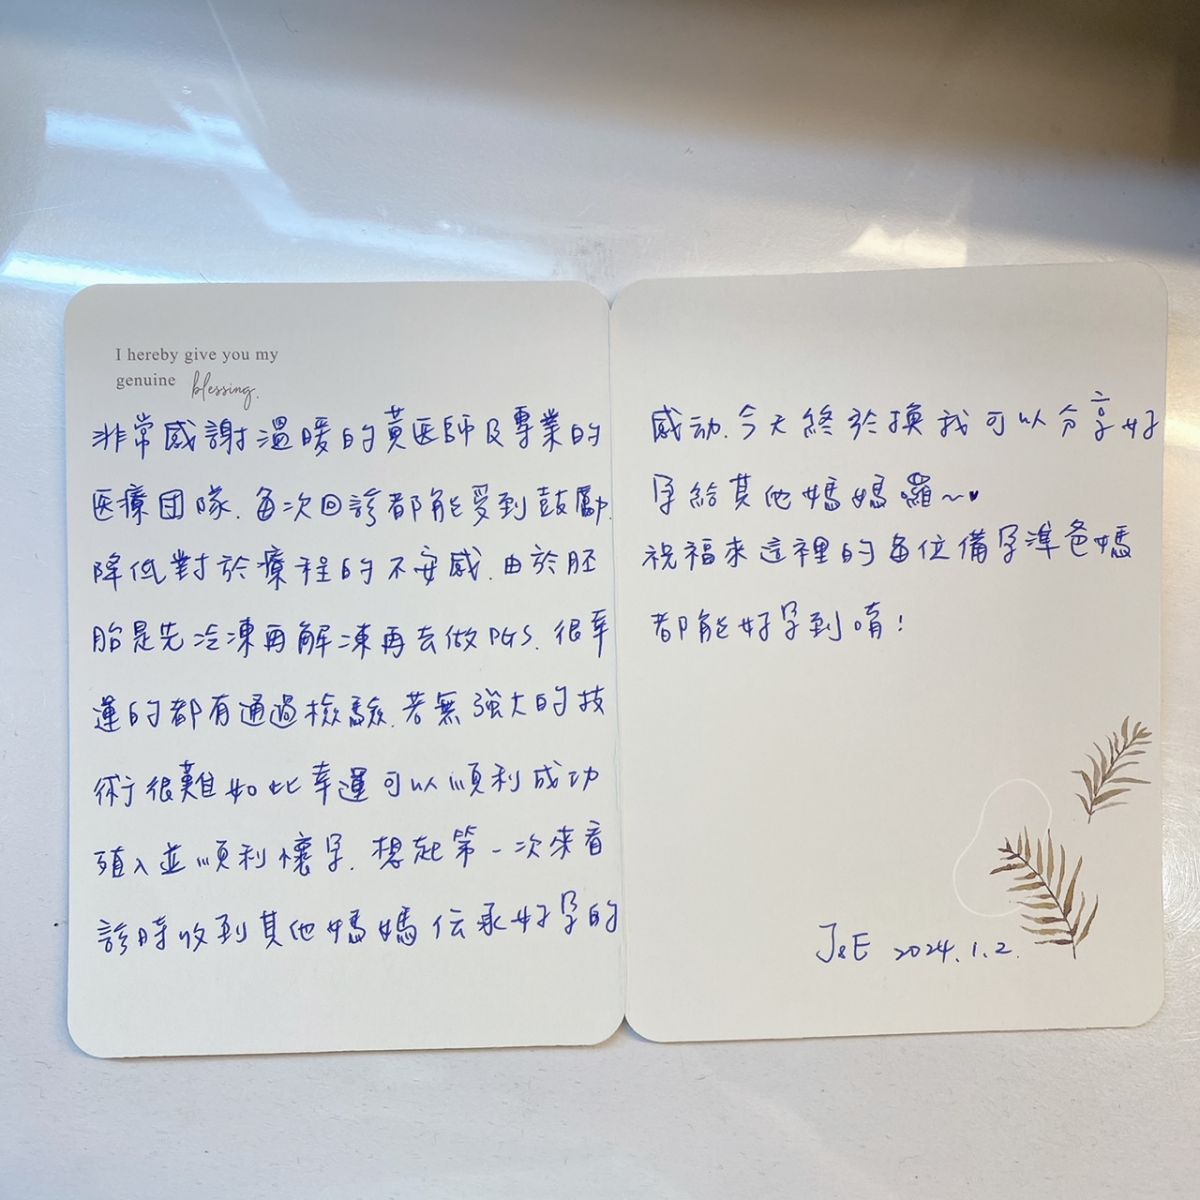 I hereby give you my
genuine blessing.
非常感謝溫暖的黃医師及專業的
医療団隊. 每次回診都能受到鼓勵.
降低對於療程的不安感. 由於胚
胎是先冷凍再解凍再去做PGS. 很幸
運的都有通過檢驗. 若無強大的技
術很難如此幸運可以順利成功
殖入並順利懷孕. 想起第一次來看
診時收到其他媽媽伝承好孕的
感动. 今天終於換我可以分享好
孕給其他媽媽囉~♥
祝福來這裡的每位備孕準爸媽
都能好孕到唷!
J&E 2024.1.2.